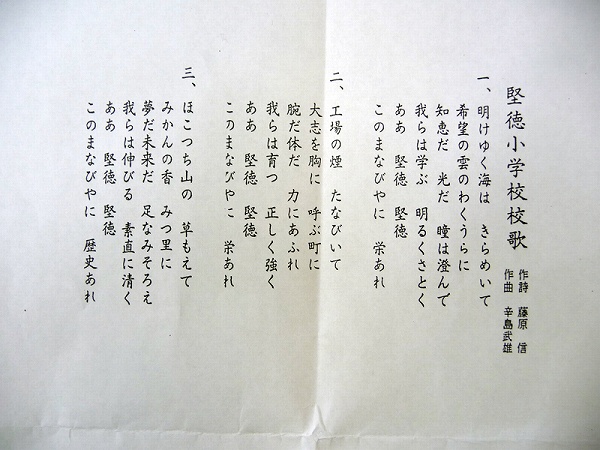 堅徳小学校校歌
作詩 藤原 信
作曲 辛島武雄
一、明けゆく海は きらめいて
希望の雲のわくうらに
知恵だ 光だ 瞳は澄んで
我らは学ぶ 明るくさとく
ああ 堅徳 堅徳
このまなびやに 栄あれ
二、工場の煙 たなびいて
大志を胸に 呼ぶ町に
腕だ体だ 力にあふれ
我らは育つ 正しく強く
ああ 堅徳 堅徳
このまなびやに 栄あれ
三、ほこつち山の 草もえて
みかんの香 みつ里に
夢だ未来だ 足なみそろえ
我らは伸びる 素直に清く
ああ 堅徳 堅徳
このまなびやに 歴史あれ